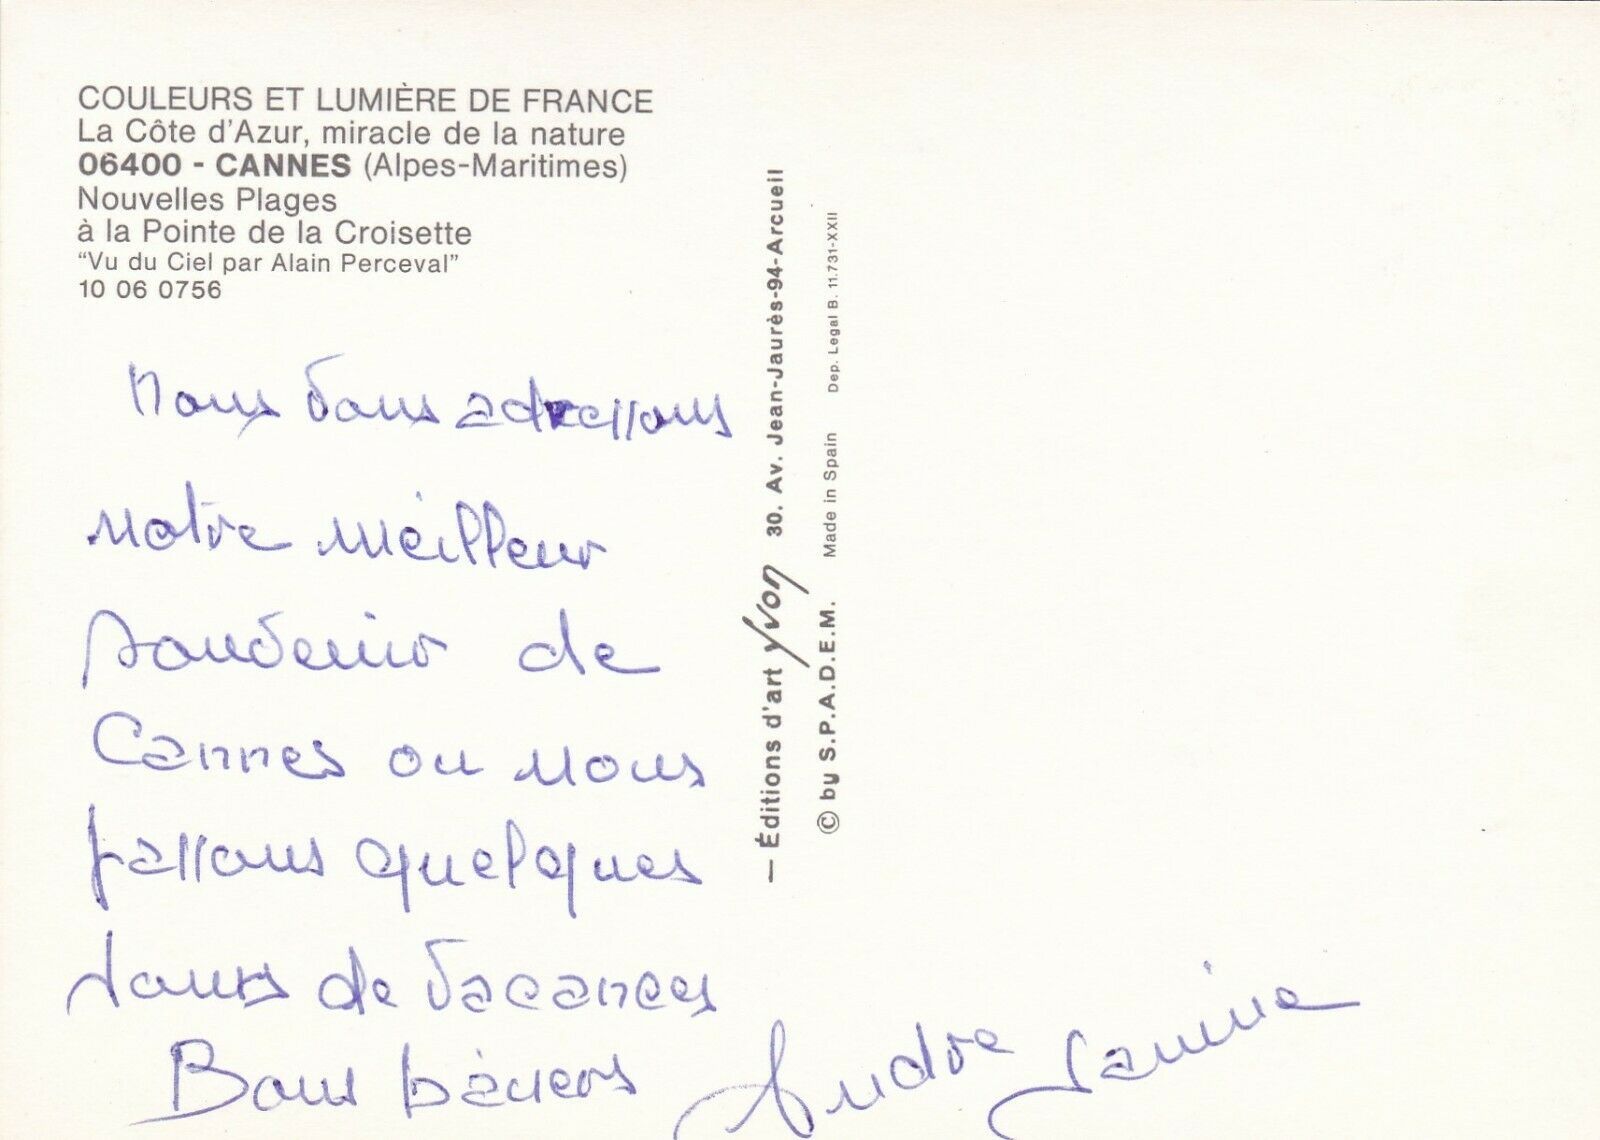 COULEURS ET LUMIÈRE DE FRANCE
La Côte d'Azur, miracle de la nature
06400 - CANNES (Alpes-Maritimes)
Nouvelles Plages
à la Pointe de la Croisette
“Vu du Ciel par Alain Perceval”
10 06 0756
Nous vous adressons
notre meilleur
souvenir de
Cannes ou nous
passons quelques
jours de vacances
Bons baisers André Janine
— Éditions d'art Yvon 30. Av. Jean-Jaurès-94-Arcueil
© by S.P.A.D.E.M. Made in Spain Dep. Legal B. 11.731-XXII